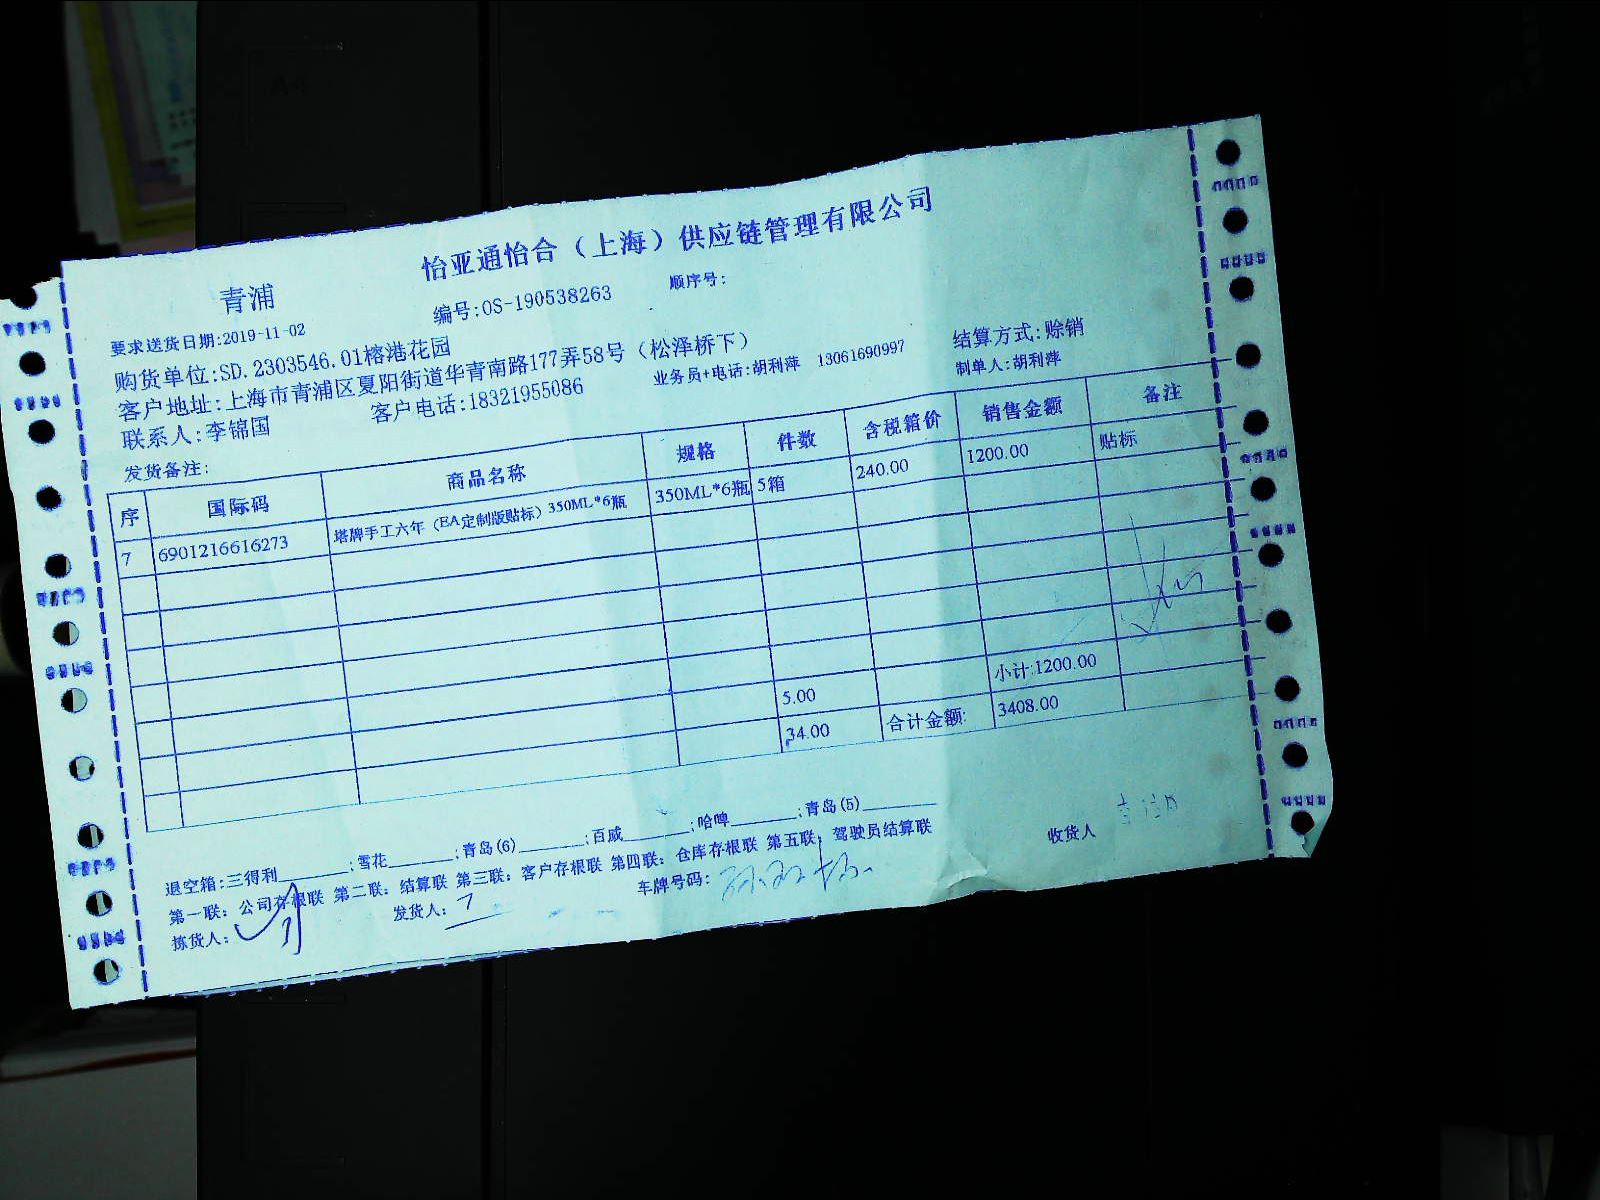 怡亚通怡合（上海）供应链管理有限公司
青浦
编号:OS-190538263
顺序号:
要求送货日期:2019-11-02
购货单位:SD.2303546.01榕港花园
结算方式:赊销
客户地址:上海市青浦区夏阳街道华青南路177弄58号（松泽桥下）
制单人:胡利萍
联系人:李锦国
客户电话:18321955086
业务员+电话:胡利萍 13061690997
发货备注:
序 国际码 商品名称 规格 件数 含税箱价 销售金额 备注
7 6901216616273 塔牌手工六年（EA定制版贴标）350ML*6瓶 350ML*6瓶 5箱 240.00 1200.00 贴标
5.00 小计:1200.00
34.00 合计金额: 3408.00
退空箱:三得利_______;雪花_______;青岛(6)_______;百威_______;哈啤_______;青岛(5)_______
第一联：公司存根联 第二联：结算联 第三联：客户存根联 第四联：仓库存根联 第五联：驾驶员结算联
拣货人:
发货人:
车牌号码:
收货人